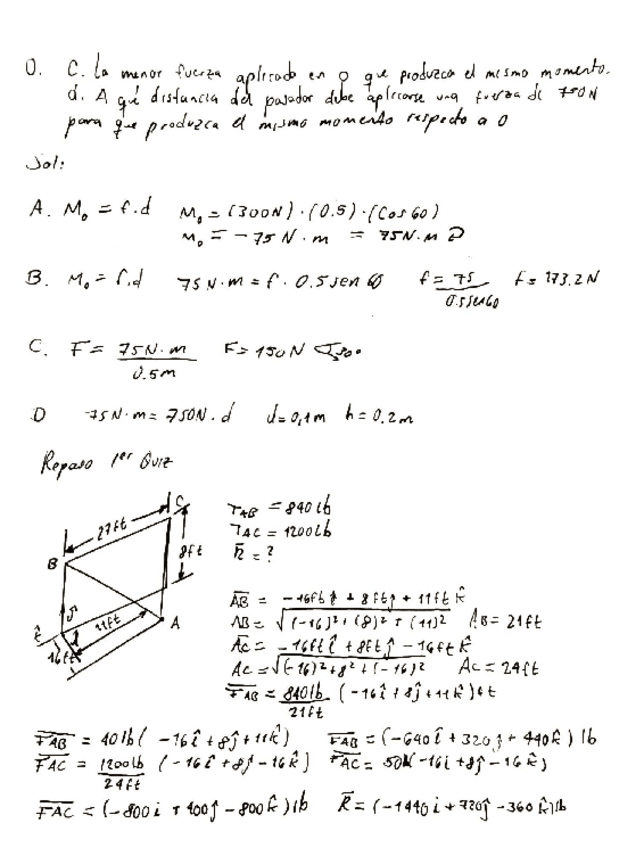 O. C. La menor fuerza aplicado en O que produzca el mismo momento.
d. A qué distancia del pasador debe aplicarse una fuerza de 750N
para que produzca el mismo momento respecto a O
Sol:
A. M₀ = f.d M₀ = (300N)·(0.5)·(Cos60)
M₀ = -75 N·m = 75N.m ↻
B. M₀ = f.d 75 N·m = f · 0.5 sen 60 f = 75/0.5sen60 f = 173.2N
C. F = 75N·m/0.5m F = 150N 30°
D -75N·m = 750N.d d = 0,1m h = 0.2m
Repaso 1er Quiz
C
27ft
8ft
B
11ft
A
16ft
TAB = 840 lb
TAC = 1200Lb
R̄ = ?
AB = -16ft î + 8ftj + 11ft k̂
AB = √(-16)²+(8)²+(11)² AB = 21ft
AC = -16ft î + 8ft ĵ - 16ft k̂
AC = √(-16)²+8²+(-16)² AC = 24ft
FAB = 840lb/21ft (-16î + 8ĵ + 11k̂) ft
FAB = 40 lb (-16î + 8ĵ + 11k̂) FAB = (-640î + 320j + 440k̂) lb
FAC = 1200lb/24ft (-16î + 8j - 16k̂) FAC = 50(-16i + 8j - 16k̂)
FAC = (-800i + 400ĵ - 800k̂) lb R̄ = (-1440i + 720ĵ - 360k̂) lb